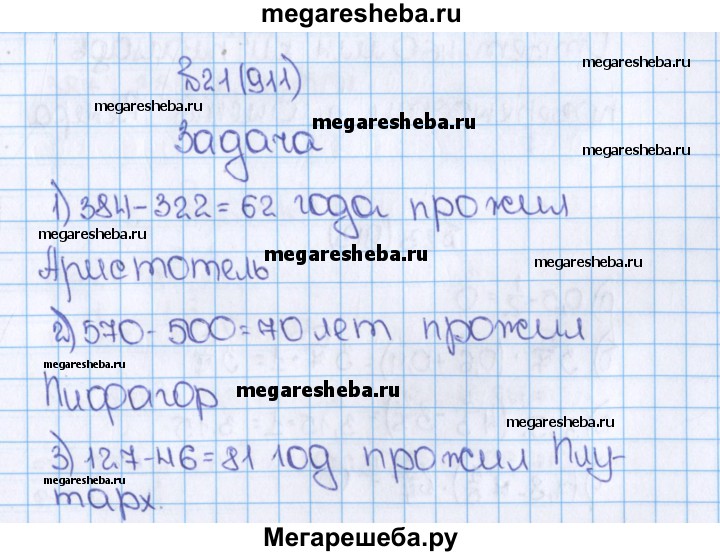 megaresheba.ru
§21(911)
megaresheba.ru
megaresheba.ru
megaresheba.ru
Задача
1) 384-322=62 года прожил
megaresheba.ru
megaresheba.ru
megaresheba.ru
Аристотель
2) 570-500=70 лет прожил
megaresheba.ru
megaresheba.ru
Пифагор
megaresheba.ru
3) 127-46=81 год прожил Плу-
megaresheba.ru
тарх.
Мегарешеба.ру